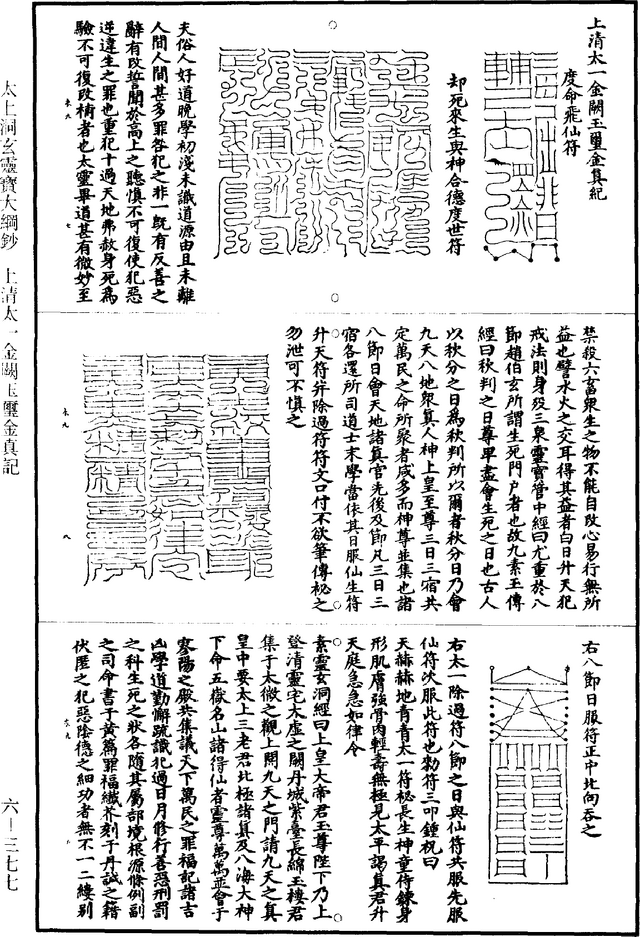 上清太一金闕玉璽金真紀
度命飛仙符
却死來生與神合德度世符
夫俗人好道晚學初淺未識道源由且未離
人間人間甚多罪咎犯之非一既有反善之
辭有改誓聞於高上之聽慎不可復使犯惡
逆違生之罪也重犯十過天地弗赦身死為
驗不可復改補者也太靈畢道甚有微妙至
禁殺六畜衆生之物不能自改心易行無所
益也譬水火之交耳得其益者白日升天犯
戒法則身歿三泉靈寶管中經曰尤重於八
節趙伯玄所謂生死門戶者也故九素玉傳
經曰秋判之日尊卑盡會生死之日也古人
以秋分之日為秋判所以爾者秋分日乃會
九天八地衆真人神上皇至尊三日三宿共
定萬民之命所聚者咸多而神尊並集也諸
八節日會天地諸真官先後及節凡三日三
宿各還所司道士末學當依其日服仙生符
升天符并除過符符文口付不欲筆傳祕之
勿泄可不慎之
右八節日服符正中北向吞之
右太一除過符八節之日與仙符共服先服
仙符次服此符也勑符三叩鍾祝曰
天赫赫地青青太一符祕長生神童侍鍊身
形肌膚強骨肉輕壽無極見太平謁真君升
天庭急急如律令
素靈玄洞經曰上皇大帝君玉尊陛下乃上
登清靈宅太虛之闕丹城紫臺長綿玉樓君
集于太微之觀上開九天之門請九天之真
皇中要太上三老君北極諸真及八海大神
下命五嶽名山諸得仙者靈尊萬萬並會于
寒陽之殿共集議天下萬民之罪福記諸吉
凶學道勤懈疏識犯過日月修行善惡刑罰
之科生死之狀各隨其屬部境根源條例副
之司命書于黃篇罪福纖芥刻于丹誠之籍
伏匿之犯惡陰德之細功者無不一二縷別
太上洞玄靈寶大綱鈔　上清太一金闕玉璽金真記
六—三七七